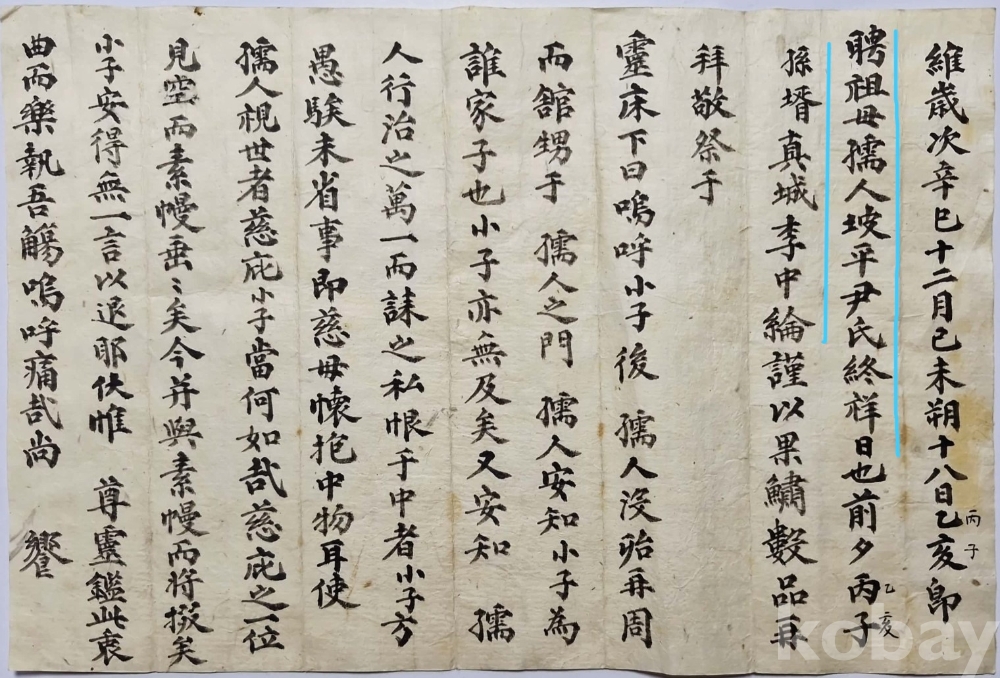 維歲次辛巳十二月己未朔十八日乙亥卽
丙子
聘祖母孺人坡平尹氏終祥日也前夕丙子
乙亥
孫壻真城李中綸謹以果鱐數品再
拜敬祭于
靈床下曰嗚呼小子後 孺人沒殆再周
而舘甥于 孺人之門 孺人安知小子為
誰家子也小子亦無及矣又安知 孺
人行治之萬一而誄之私恨乎中者小子方
愚騃未省事即慈母懷抱中物耳使
孺人視世者慈庇小子當何如哉慈庇之一位
見空而素幔垂〻矣今并與素幔而將撥矣
小子安得無一言以退耶伏惟 尊靈鑑此衷
曲而樂執吾觴嗚呼痛哉尚 饗
kobay